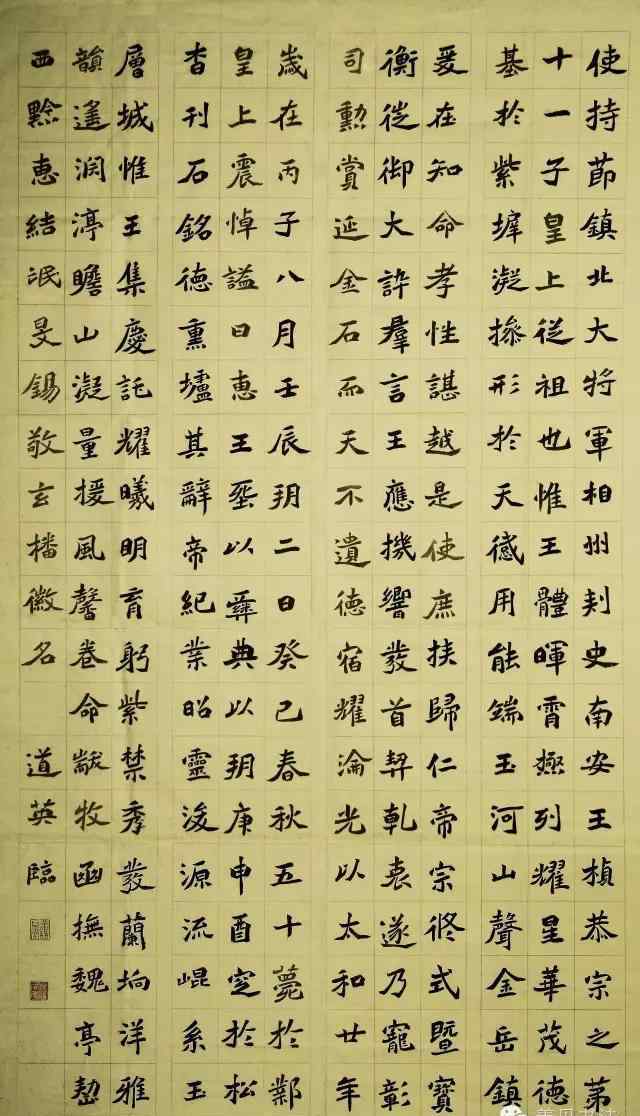 使持節鎮北大將軍相州刾史南安王楨恭宗之第
十一子皇上從祖也惟王體暉霄極列耀星華茂德
基於紫墀凝操形於天感用能端玉河山聲金岳鎮
爰在知命孝性諶越是使庶族歸仁帝宗攸式暨寶
衡徙御大訊羣言王應機響發首契乹衷遂乃寵彰
司勳賞延金石而天不遺德宿耀淪光以太和廿年
歲在丙子八月壬辰朔二日癸巳春秋五十薨於鄴
皇上震悼謚曰惠王葬以彝典以朔庚申酉窆於松
杳刊石銘德熏壚其辭帝紀業昭靈浚源流崐系玉
層城惟王集慶託耀曦明育躬紫禁秀發蘭坰洋雅
韻遙澗渟瞻山凝量援風馨卷命猷牧函撫魏亭塹
西黔惠結氓旻錫敬玄播徽名
道英臨